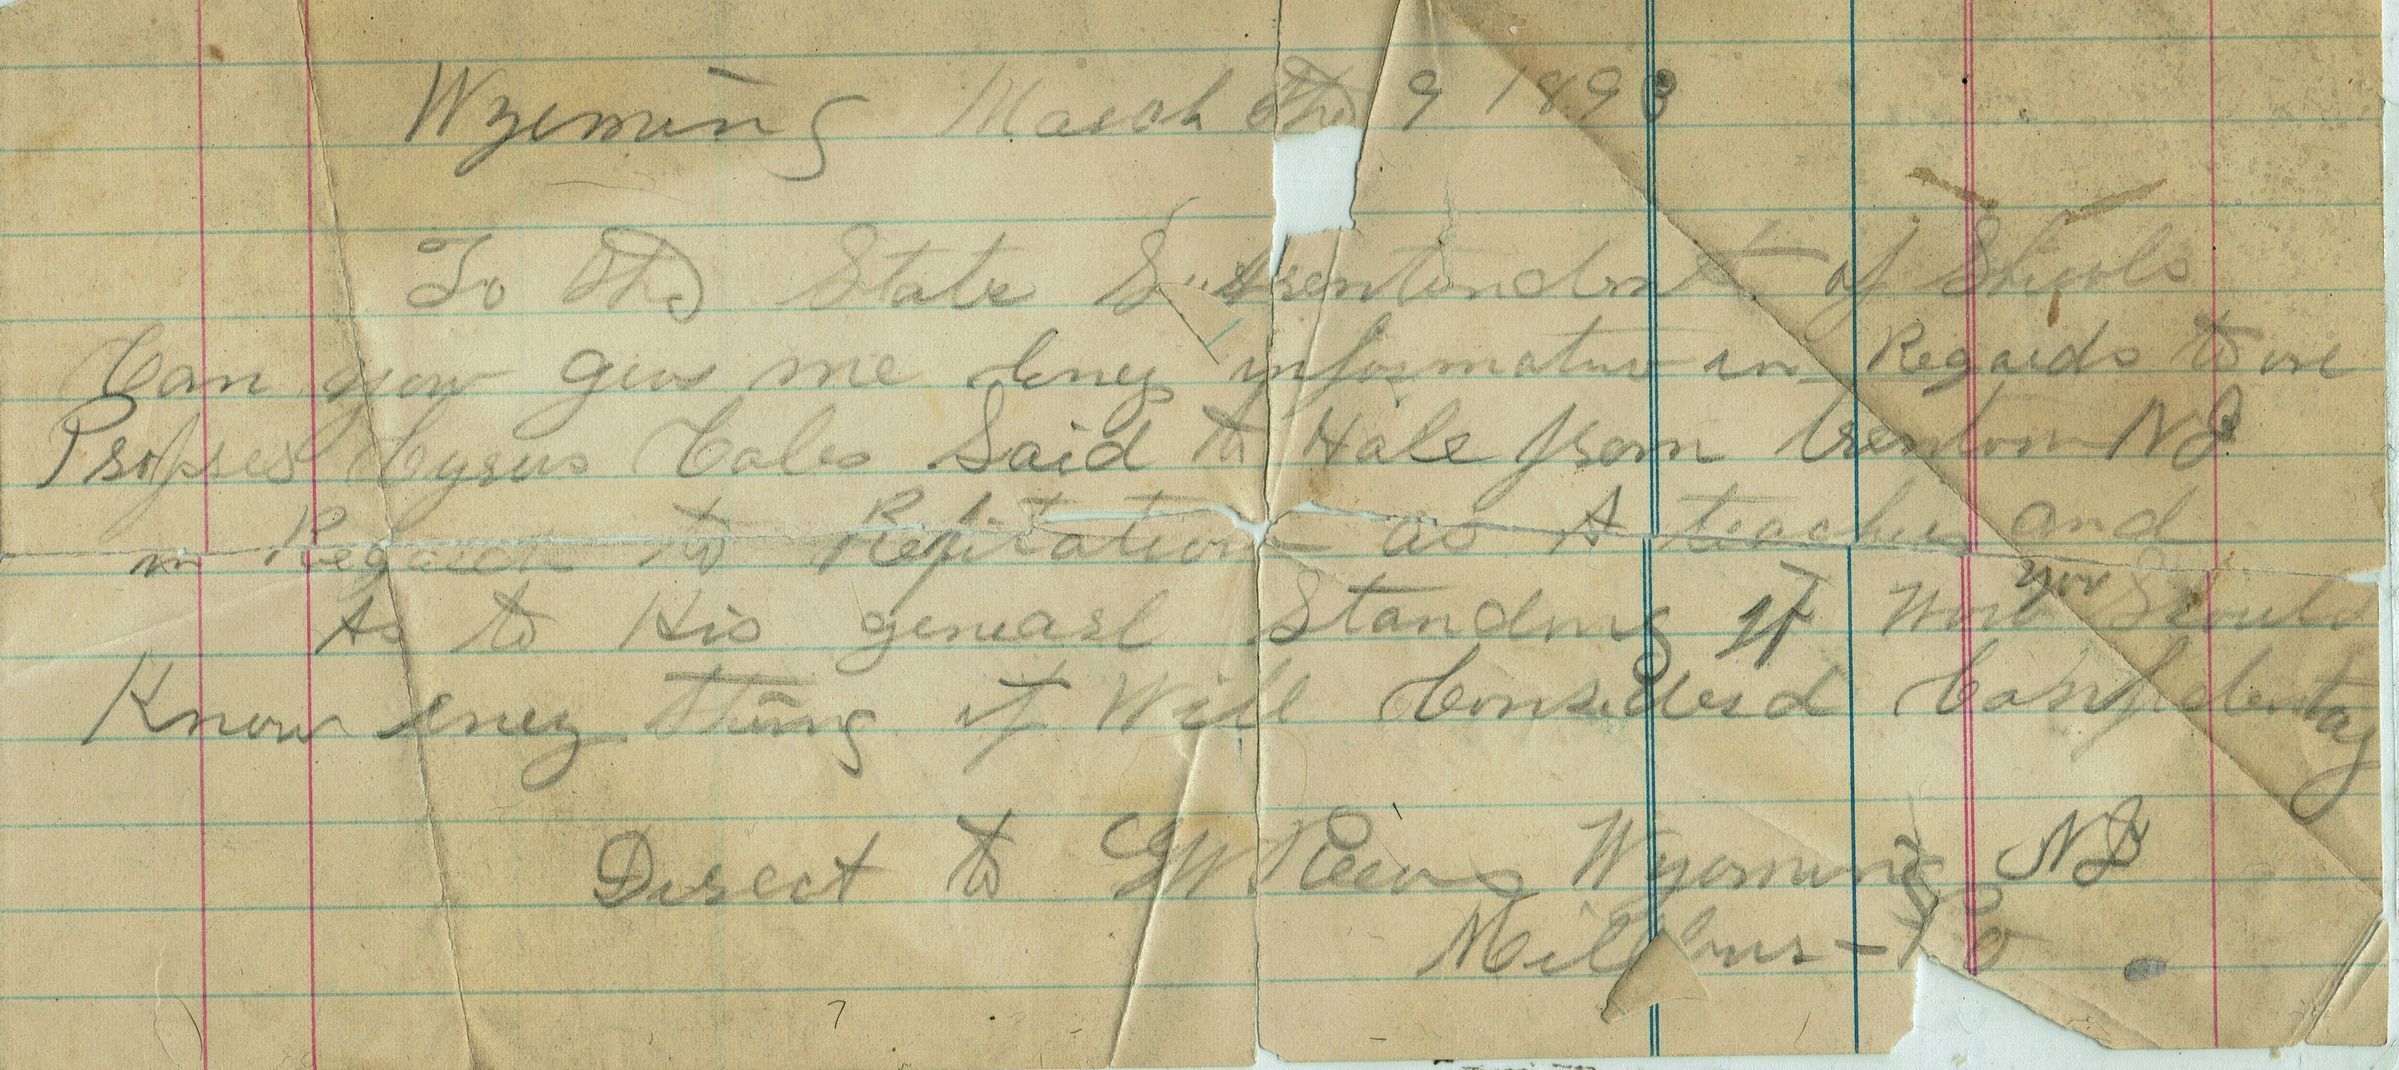 Wyeming March the 9 1893
To the State Suprentendent of Shools
Can you give me Eney information in Regards to one
Professer Cyrus Coles Said to Hale from Trenton NJ
in Regards to Repitation as A teacher and
As to His generarl Standing if you Should
Know eney thing it Will Considerd Confidentay
Direct to GW Reeve Wyoming NJ
Milburn - P O